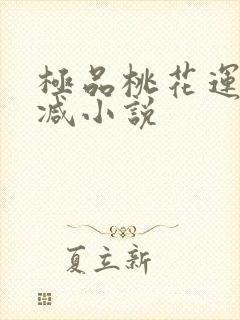 極品桃花運
减小說
夏立新